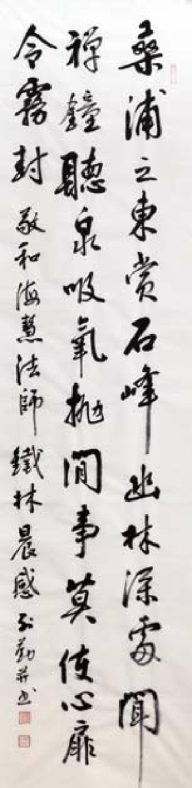 桑浦之東赏石峰幽林深處聞
禅鐘聽泉吸氧抛閒事莫使心扉
令霧封 敬和海慧法師鐵林晨感 勤并书